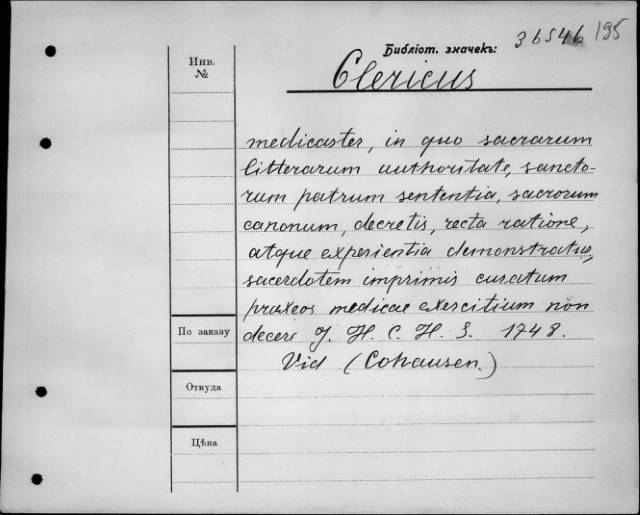 36546 195
Библіот. значекъ:
Инв.
№
Clericus
medicaster, in quo sacrarum
litterarum authoritate, sancto-
rum patrum sententia, sacrorum
canonum, decretis, recta ratione,
atque experientia demonstratur,
sacerdotem imprimis curatum
praxeos medicae exercitium non
decere J. H. C. H. S. 1748.
Vid (Cohausen.)
По заказу
Откуда
Цѣна